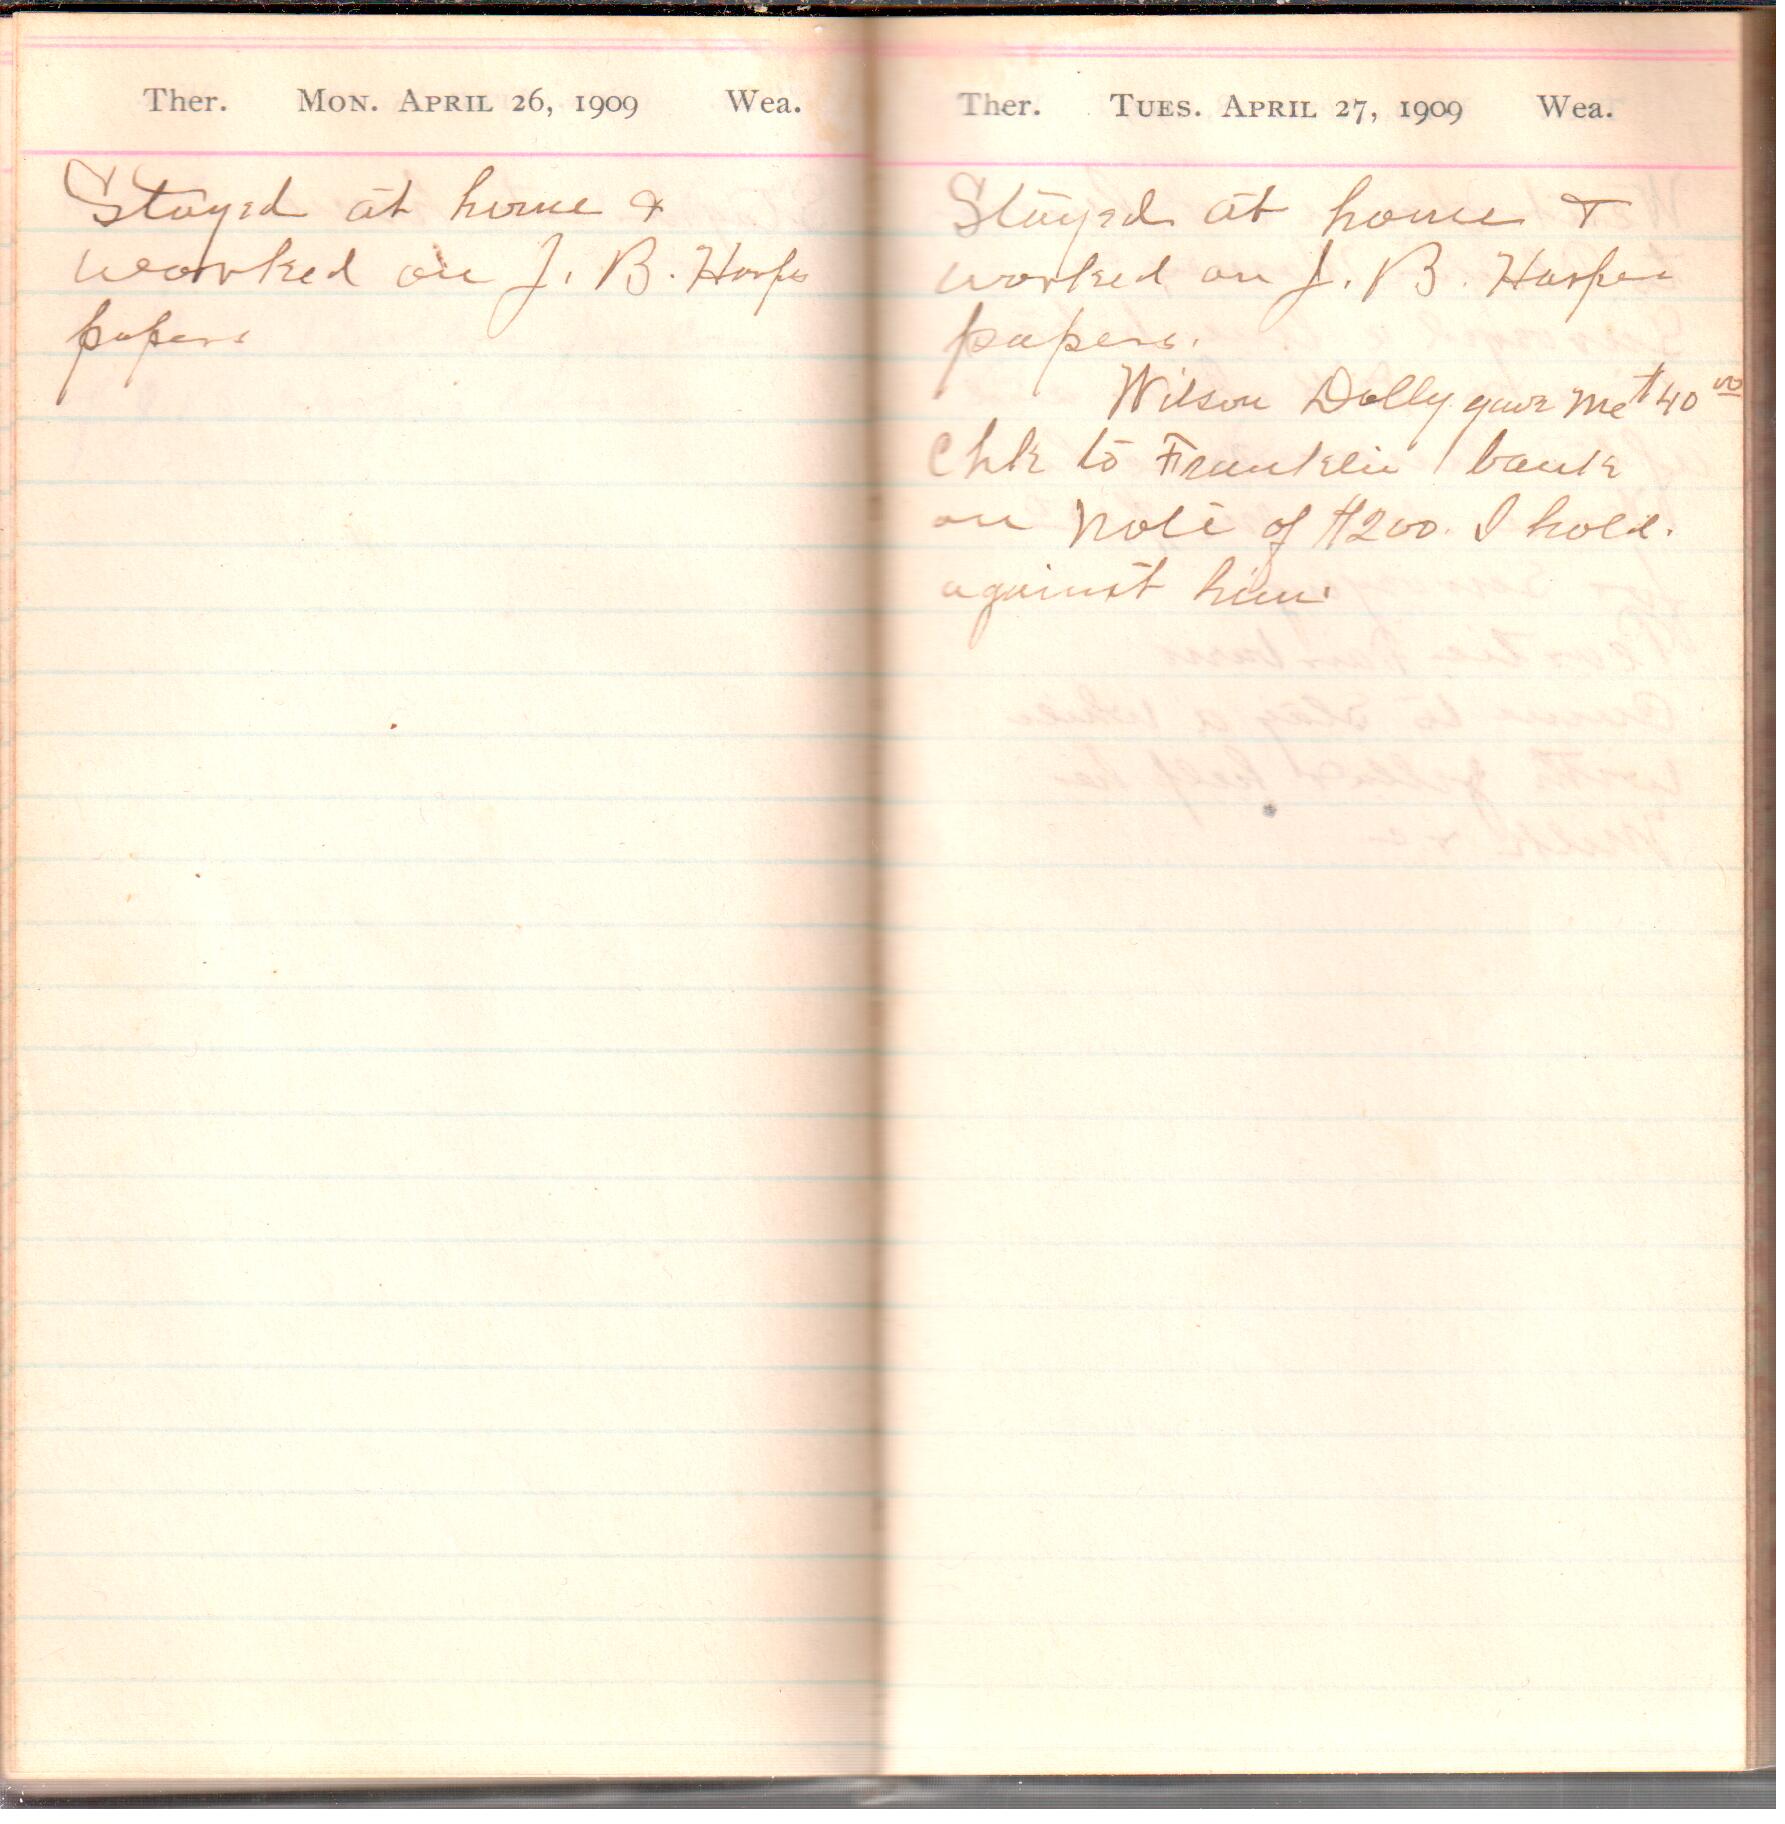 Ther. Mon. April 26, 1909 Wea.
Stayed at home &
worked on J. B. Harper
papers
Ther. Tues. April 27, 1909 Wea.
Stayed at home &
worked on J. B. Harper
papers.
Wilson Dolly gave me $40 00
Chk to Franklin bank
on note of $200. I hold.
against him.